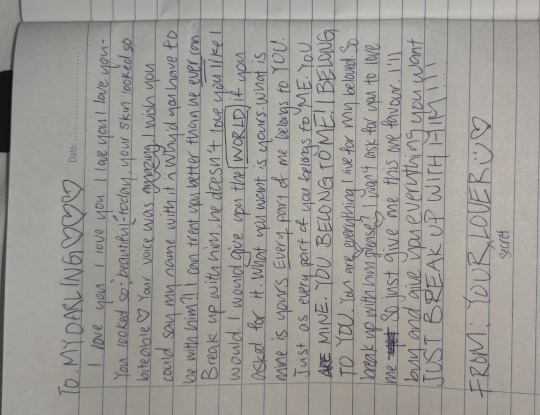 To: MY DARLING♡♡♡
Date:
I love you I love you I love you I love you-
You looked so beautiful today, your skin looked so
biteable♡ Your voice was amazing I wish you
could say my name with it :( Would you have to
be with him?! I can treat you better than he ever can
Break up with him, he doesn't love you like I
would. I would give you the WORLD if you
asked for it. What you want is yours. What is
mine is yours Every part of me belongs to YOU.
Just as every part of you belongs to ME. YOU
ARE MINE. YOU BELONG TO ME! I BELONG
TO YOU. You are everything ever for my beloved. So
break up with him please? I won't ask for you to love
me So just give me this one favour!!!
and give you everything you want.
JUST BREAK UP WITH HIM!!!
FROM: YOUR LOVER ♡
secret